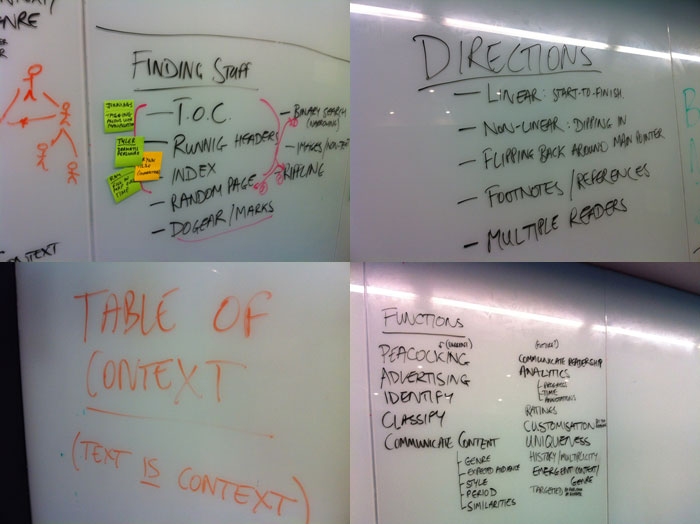 GENRE
FINDING STUFF
- T.O.C.
- RUNNIG HEADERS
- INDEX
- RANDOM PAGE
- DOGEAR/MARKS
- BINARY SEARCH
- IMAGES/
- RIFFLING
TYLER
TEXT
DIRECTIONS
- LINEAR: START-TO-FINISH.
- NON-LINEAR: DIPPING IN
- FLIPPING BACK AROUND MAIN POINTER
- FOOTNOTES/REFERENCES
- MULTIPLE READERS
TABLE OF
CONTEXT
(TEXT IS CONTEXT)
FUNCTIONS
PEACOCKING
ADVERTISING
IDENTIFY
CLASSIFY
COMMUNICATE CONTENT
- GENRE
- EXPECTED AUDIENCE
- STYLE
- PERIOD
- SIMILARITIES
COMMUNICATE READERSHIP
ANALYTICS
- PROGRESS
- TIME
- ANNOTATIONS
RATINGS
CUSTOMISATION
UNIQUENESS
HISTORY/MULTIPLICITY
EMERGENT CONTEXT/
GENRE
TARGETED